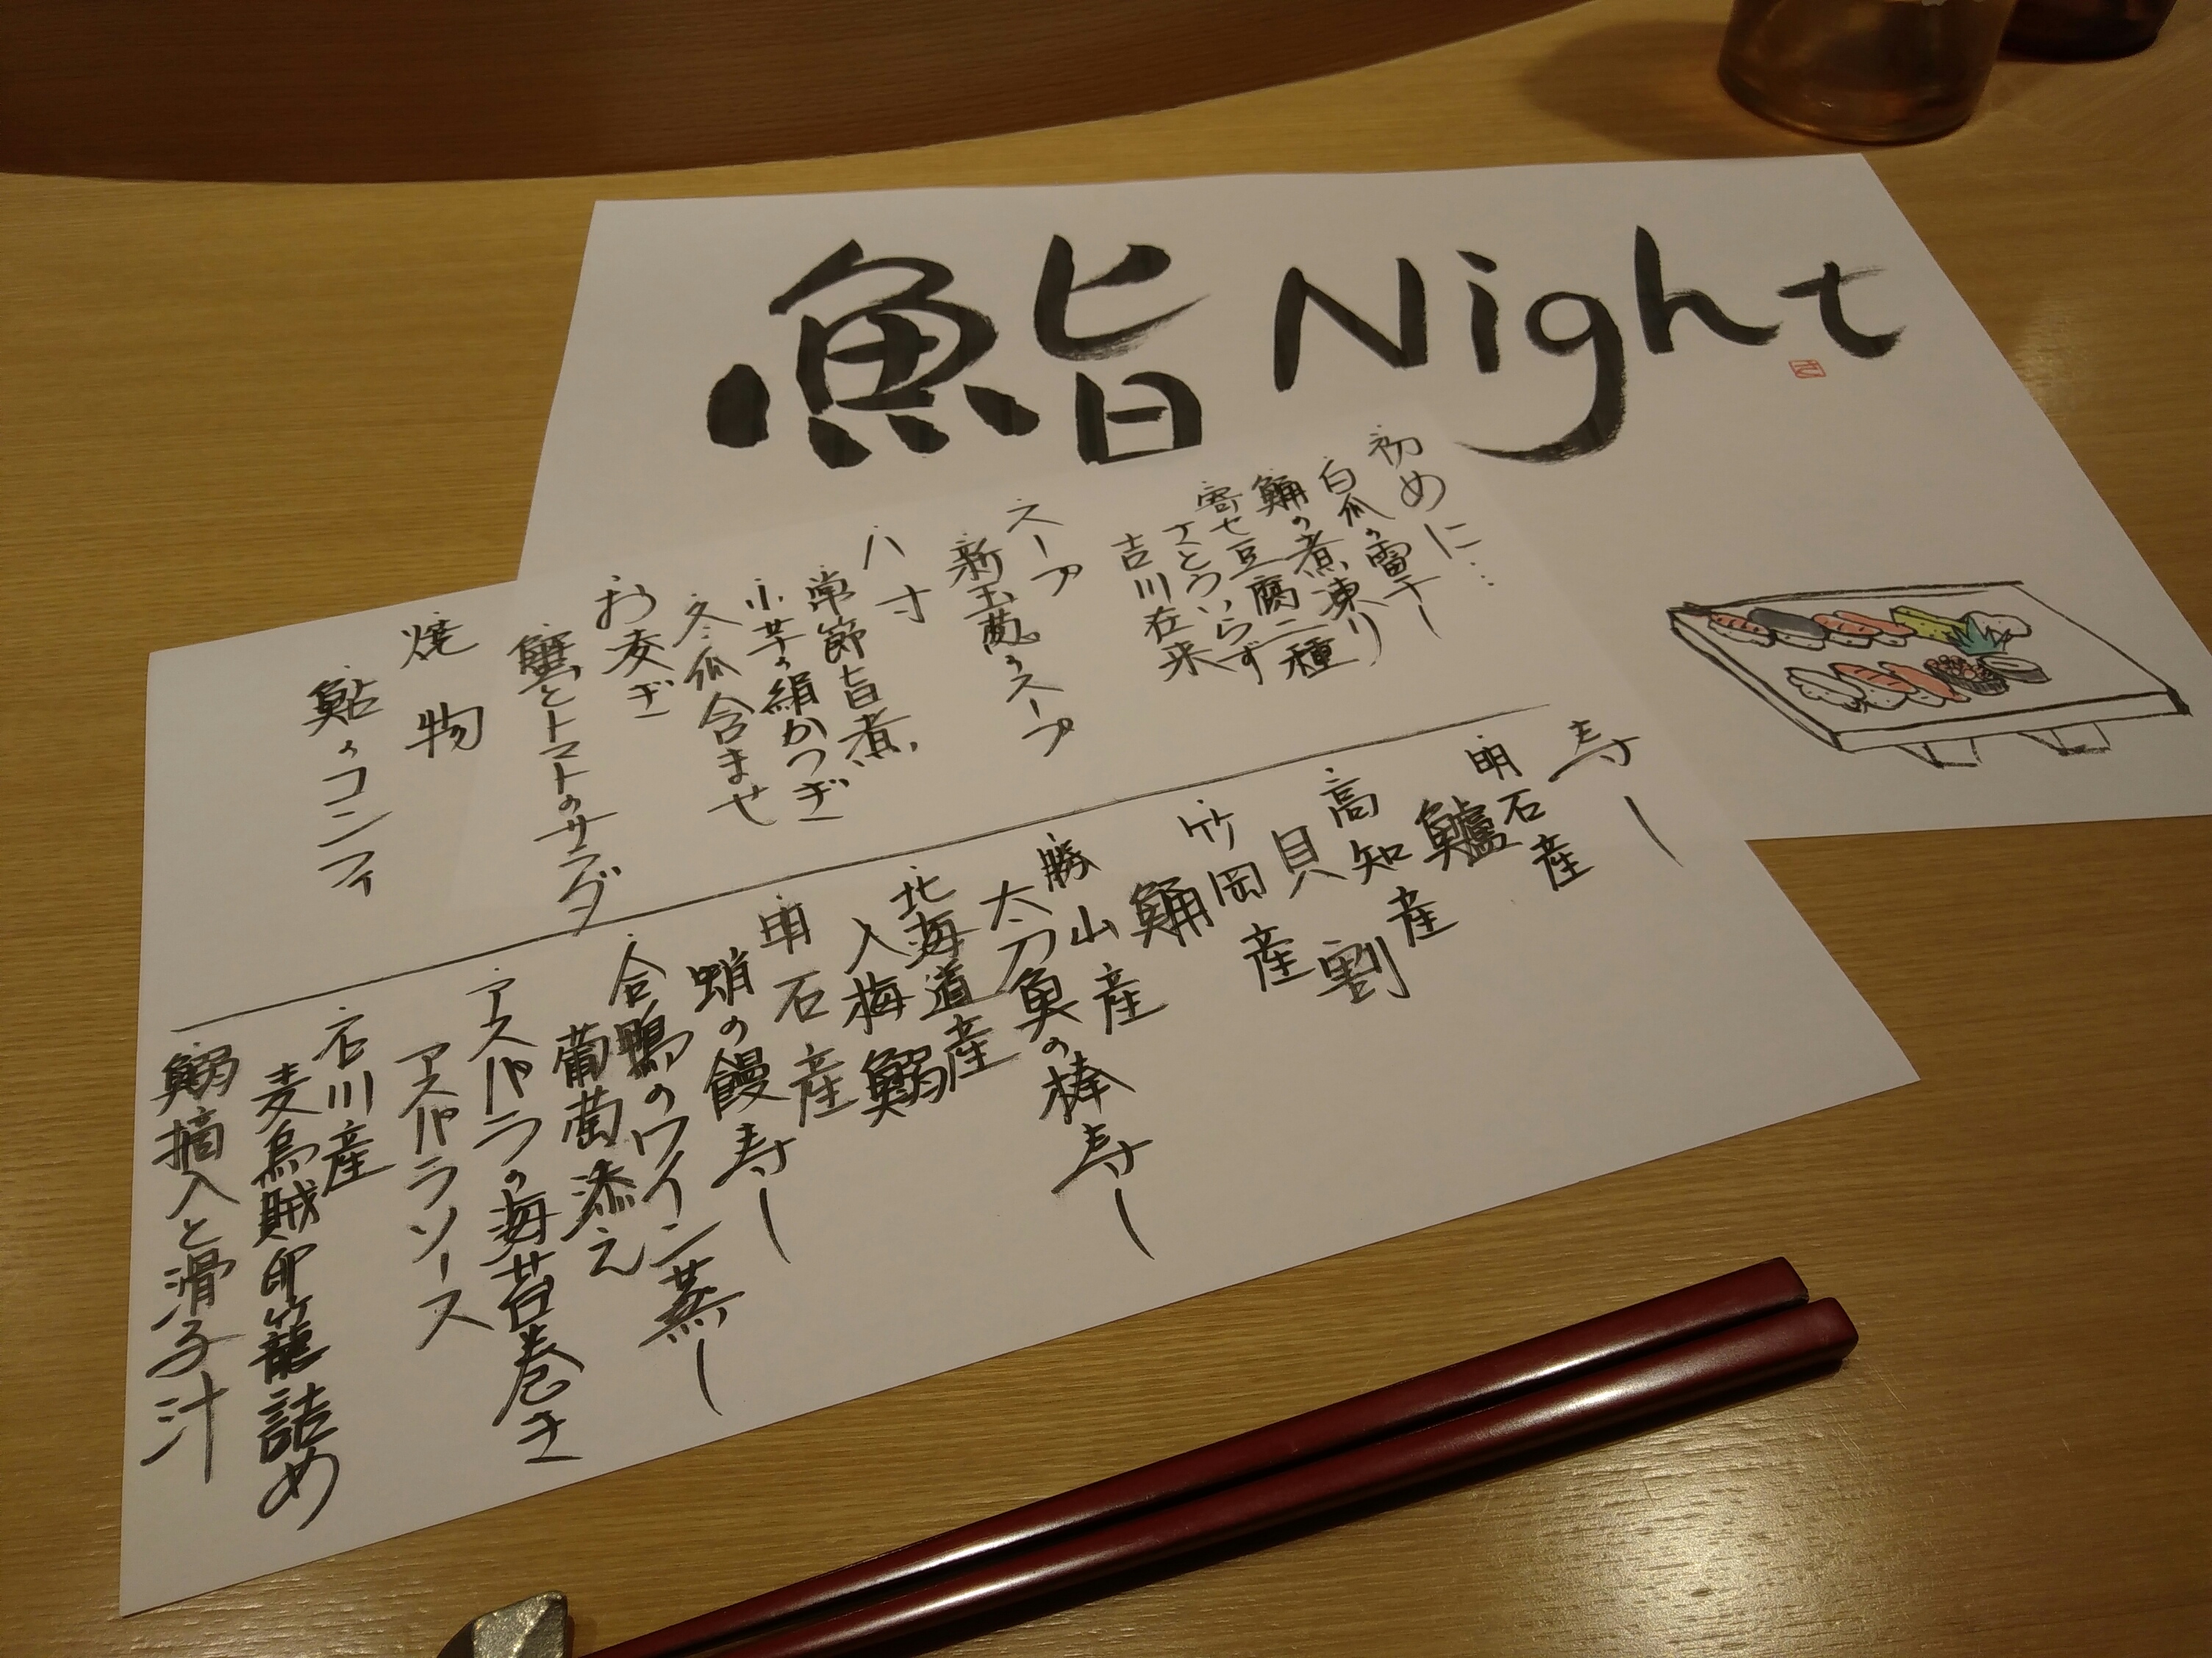 鮨 Night
初めに…
白瓜の雷干し
鯒の煮凍り
寄せ豆腐二種
さとういらず
吉川在来
スープ
新玉葱のスープ
八寸
常節旨煮
小芋の絹かつぎ
冬瓜含ませ
お凌ぎ
蟹とトマトのサラダ
焼物
鮎のコンフィ
寿し
明石産
鱸
高知産
貝割
竹岡産
鯒
勝山産
太刀魚の棒寿し
北海道産
入梅鰯
明石産
蛸の饅寿し
合鴨のワイン蒸し
葡萄添え
アスパラの海苔巻き
アスパラソース
石川産
麦烏賊印籠詰め
鰯摘入と滑子汁